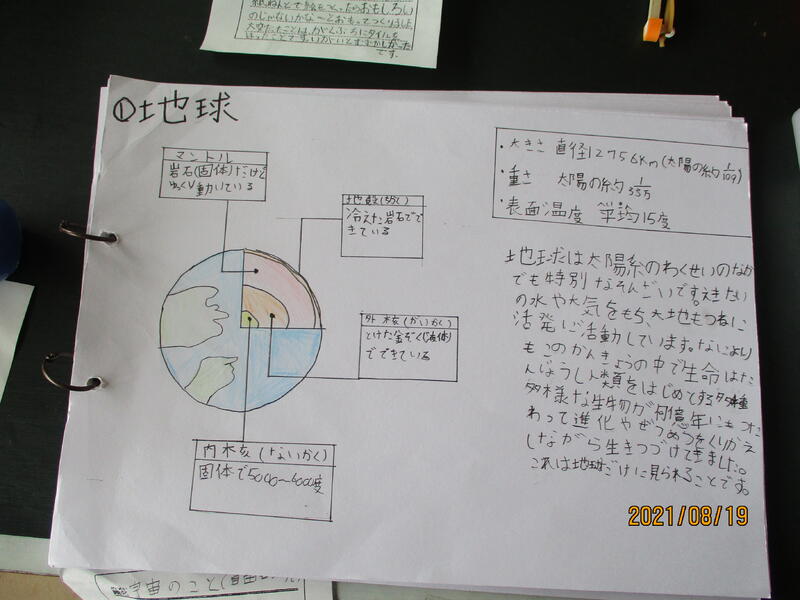 のじゃないかな～とおもってつくりました。
大変だったことは、がくぶちにタイルを
です。
①地球
マントル
岩石(固体)だけど
ゆっくり動いている
地殻(ちかく)
冷えた岩石でで
きている
外核(がいかく)
とけた金ぞく(液体)
でできている
内核(ないかく)
固体で5000～6000度
・大きさ 直径12756km(太陽の約1/109)
・重さ 太陽の約1/33万
・表面温度 平均15度
地球は太陽系のわくせいのなか
でも特別なそんざいです。えきたい
の水や大気をもち、大地もつねに
活発に活動しています。なにより
もこのかんきょうの中で生命はた
んじょうし人類をはじめとする多種
多様な生物が何億年にもわた
わって進化やぜつめつをくりかえ
しながら生きつづけてきました。
これは地球だけに見られることです。
2021/08/19
宇宙のこと